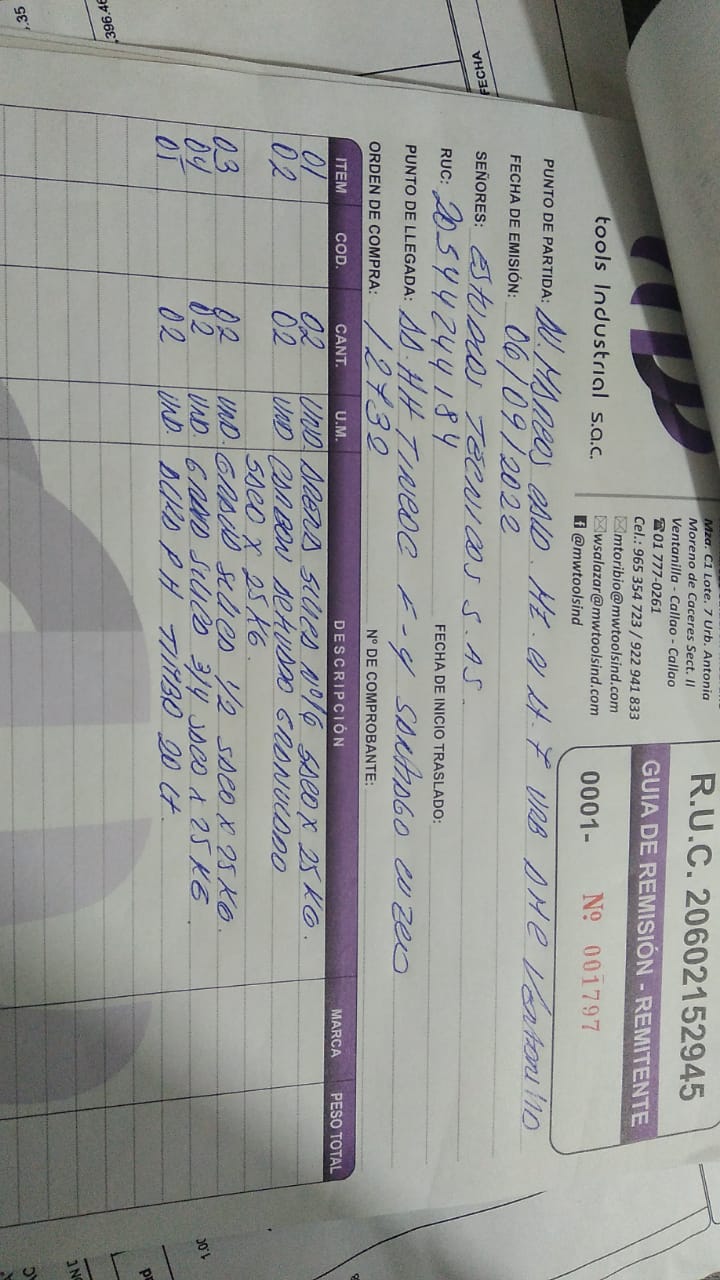 tools Industrial s.a.c.
Mza. C1 Lote. 7 Urb. Antonia
Moreno de Caceres Sect. II
Ventanilla - Callao - Callao
☎01 777-0261
Cel.: 965 354 723 / 922 941 833
mtoribio@mwtoolsind.com
wsalazar@mwtoolsind.com
@mwtoolsind
R.U.C. 20602152945
GUIA DE REMISIÓN - REMITENTE
0001- Nº 001797
PUNTO DE PARTIDA: AV. MZ. C1 LT. 7 URB AMC
FECHA DE EMISIÓN: 06/09/2022
SEÑORES: TECNICOS S.AS
RUC: 20544244184 FECHA DE INICIO TRASLADO:
PUNTO DE LLEGADA: AA.HH TINEOC F-4 SANTIAGO
ORDEN DE COMPRA: 12732 Nº DE COMPROBANTE:
ITEM COD. CANT. U.M. DESCRIPCIÓN MARCA PESO TOTAL
01 02 UND. ARENA SILICA Nº16 SACO X 25 KG.
02 02 UND CARBON GRANULADO
SACO X 25 KG.
03 02 UND. SILICO 1/2 SACO X 25 KG.
04 02 UND. SILICO 3/4 SACO X 25 KG
05 02 UND. PH TURBO 20 LT.
FECHA
.396.46
.35
1.00